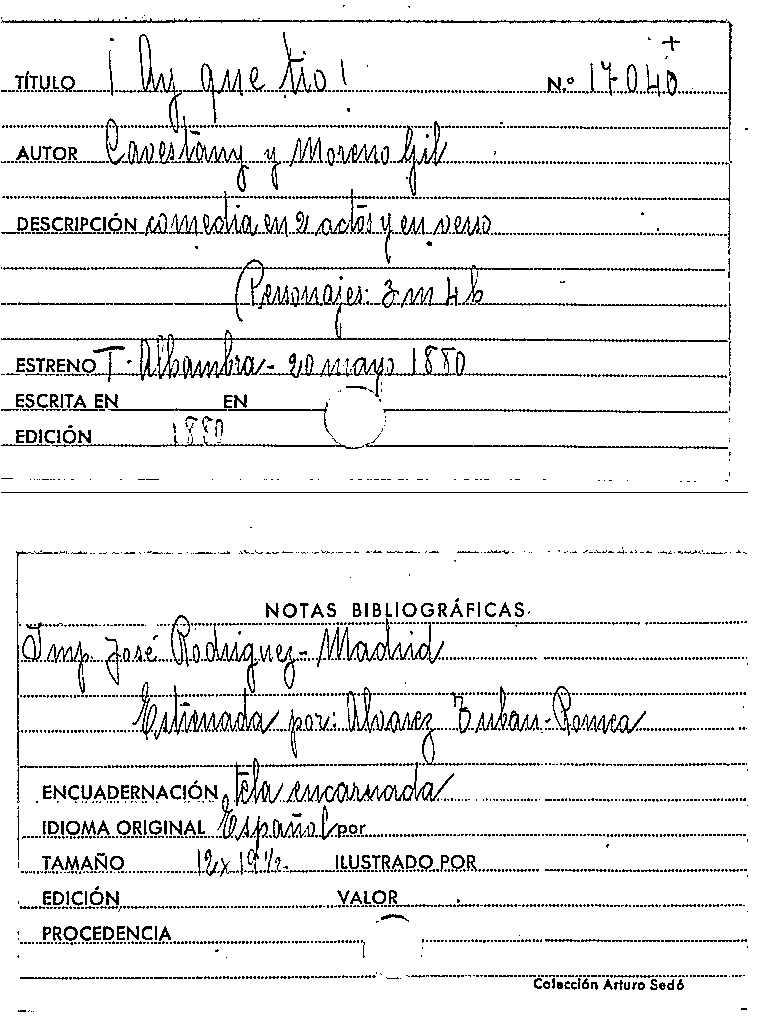 TÍTULO ¡ Ay que tio ! N.º 17-040 +
AUTOR Cavestany y Moreno Gil
DESCRIPCIÓN comedia en 2 actos y en verso
(Personajes: 3 m 4 h
ESTRENO T. Alhambra - 20 mayo 1880
ESCRITA EN EN
EDICIÓN 1880
NOTAS BIBLIOGRÁFICAS
Imp. José Rodriguez - Madrid
Estrenada por: Alvarez Tubau - Romea
ENCUADERNACIÓN tela encarnada
IDIOMA ORIGINAL Español por
TAMAÑO 12 x 19 1/2. ILUSTRADO POR
EDICIÓN VALOR
PROCEDENCIA
Colección Arturo Sedó